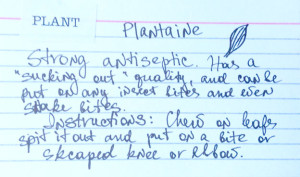 PLANT
Plantaine
Strong antiseptic. Has a
"sucking out" quality, and can be
put on any insect bites and even
snake bites.
Instructions: Chew on leafs
spit it out and put on a bite or
skcaped knee or elbow.